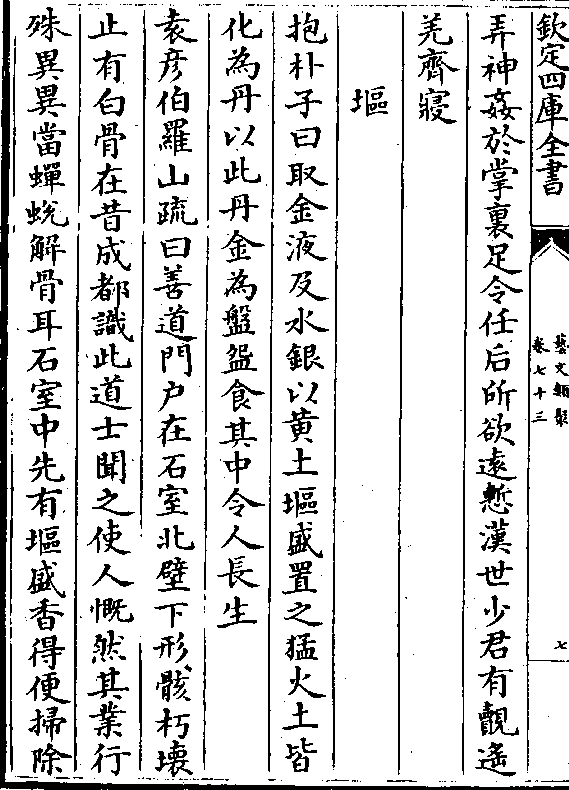 欽定四庫全書
藝文類聚
卷七十三
七
弄神姦於掌裏足令任后所欲遠慙漢世少君有覿遙
羌齊寢
塸
抱朴子曰取金液及水銀以黄土塸盛置之猛火土皆
化為丹以此丹金為盤盌食其中令人長生
袁彦伯羅山疏曰善道門户在石室北壁下形骸朽壞
止有白骨在昔成都識此道士聞之使人慨然其業行
殊異異當蟬蛻解骨耳石室中先有塸盛香得便掃除